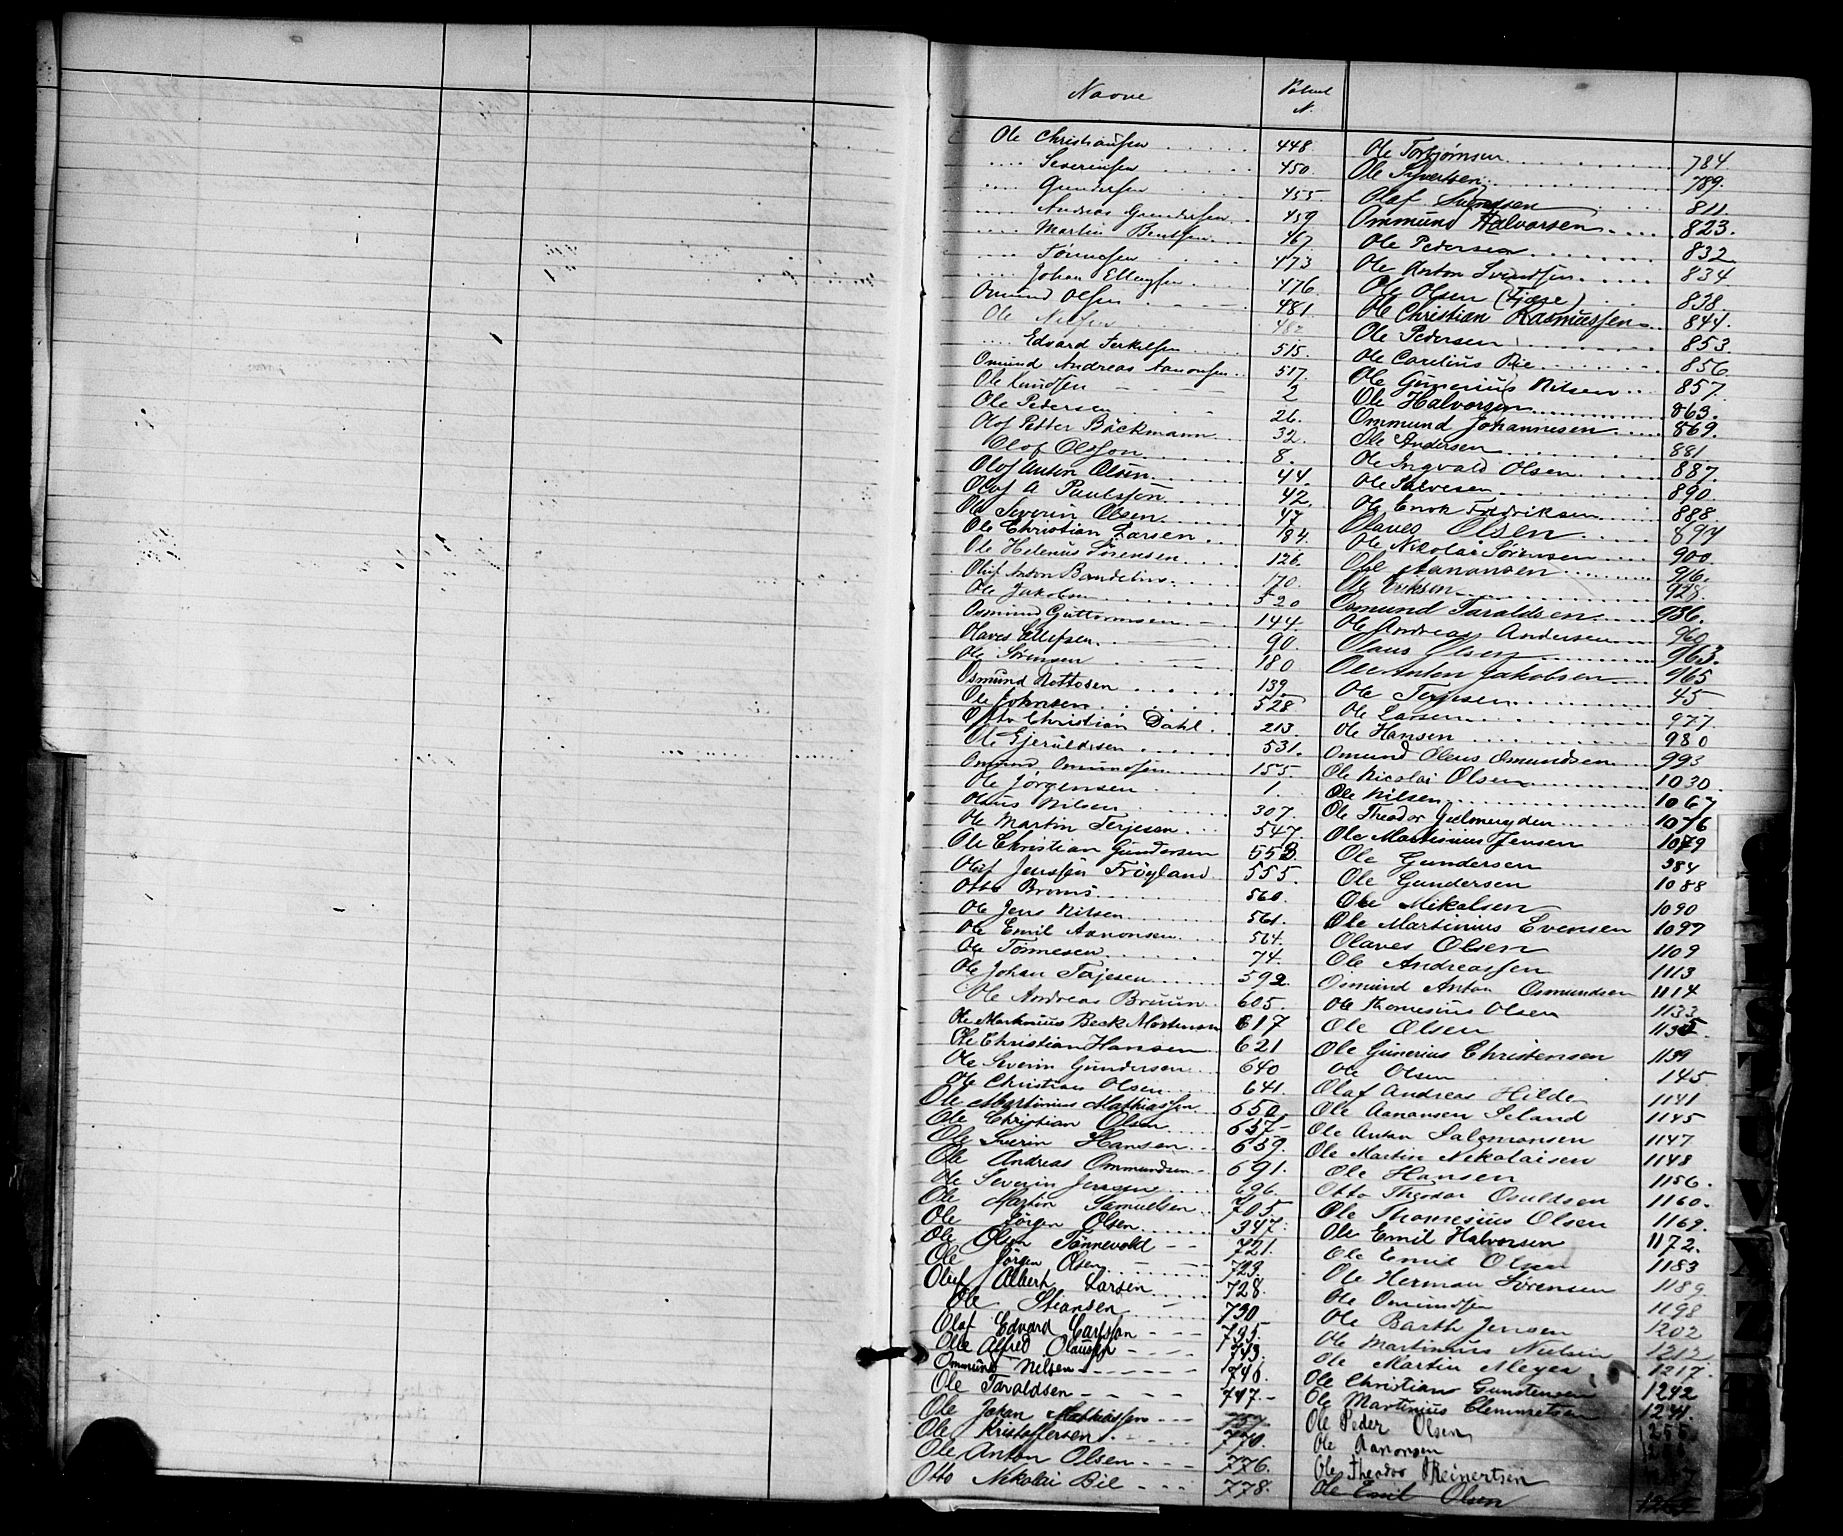 Navne Rulnl N.
Ole Christiansen 448
.... Severinsen 450.
.... Gundersen 455
.... Andreas Gundersen 459
.... Martin Bentsen 467
.... Tønnesen 473
.... Johan Ellingsen 476
Omund Olsen 481
Ole Nilsen 482
.... Edvard Terkelsen 515.
Omund Andreas Aanonsen 517
Ole Knudsen 2
Ole Pedersen 26.
Olof Petter Bäckmann 32.
Olof Olsson 8.
Olaf Anton Olsen 44.
Olof A Paulsson 42.
Ole Severin Olsen 47
Ole Christian Larsen 184
Ole Helenius Sørensen 126.
Oluf Anton Bandelins 170.
Ole Jakobsen 520
Osmund Guttormsen 144
Olaves Ellefsen 90.
Ole Sørensen 180
Osmund Nottosen 139
Ole Johnsen 528
Otto Christian Dahl 213
Ole Gjeruldsen 531.
Omund Omundsen 155.
Ole Jörgensen 1.
Olaus Nilsen 307.
Ole Martin Terjesen 547.
Ole Christian Gundersen 553.
Olaf Jenssen Tröyland 555.
Otto Broms 560.
Ole Jens Nilsen 561.
Ole Emil Aanonsen 564.
Ole Tönnesen 74.
Ole Johan Terjesen 592.
Ole Andreas Bruun 605.
Ole Martinius Beck Mortensen 617
Ole Christian Hansen 621
Ole Severin Gundersen 640
Ole Christian Olsen 641.
Ole Martinius Mathiassen 650.
Ole Christian Olsen 657-
Ole Sverin Hansen 659.
Ole Andreas Ommundsen 691.
Ole Severin Jensen 696.
Ole Martin Samuelsen 705.
Ole Jörgen Olsen 347.
Ole Olsen Tönnevold 721.
Ole Jörgen Olsen 723.
Oluf Albert Larsen 728.
Ole Stiansen 730
Olaf Edvard Carlsson 735.
Olle Alfred Olausen 743.
Ommund Nilsen 746.
Ole Taraldsen 747.-
Ole Johan Mathiassen 757.
Ole Kristoffersen 770.
Ole Anton Olsen 776.
Otto Nikolai Bie 778.
Ole Torbjørnsen 784
Ole Syvertsen 789.
Olaf Svendsen 811
Ommund Halvorsen 823.
Ole Pedersen 832
Ole Anton Svendsen 834
Ole Olsen (Fjære) 838.
Ole Christian Rasmussen 844.
Ole Pedersen 853
Ole Carelius Bie 856
Ole Gunerius Nilsen 857.
Ole Halvorsen 863.
Ommund Johannesen 869.
Ole Andersen 881
Ole Ingvald Olsen 887.
Ole Salvesen 890
Ole Enok Fredriksen 888
Olaves Olsen 894
Ole Nikolai Sørensen 900.
Ole Aanonsen 916.
Ole Eriksen 928.
Osmund Taraldsen 936.
Ole Andreas Andersen 960
Olaus Olsen 963.
Ole Anton Jakobsen 965
Ole Terjesen 45
Ole Larsen 977
Ole Hansen 980
Omund Oleus Osmundsen 993
Ole Nicolai Olsen 1030.
Ole Nilsen 1067
Ole Theodor Gulmugden 1076
Ole Martinius Jensen 1079
Ole Gundersen 384
Ole Gundersen 1088
Ole Mikalsen 1090
Ole Martinius Evensen 1097
Olaves Olsen 1109
Ole Andreassen 1113
Osmund Anton Osmundsen 1114
Ole Thomesius Olsen 1133
Ole Olsen 1135
Ole Gunerius Christensen 1139
Ole Olsen 145
Olaf Andreas Hilde 1141
Ole Aanonsen Seland 1145
Ole Anton Salomonsen 1147.
Ole Martin Nikolaisen 1148
Ole Hansen 1156.
Otto Theodor Osuldsen 1160.
Ole Thomesius Olsen 1169.
Ole Emil Halvorsen 1172.
Ole Emil Olsen 1183
Ole Herman Sørensen 1189
Ole Omundsen 1198
Ole Barth Jensen 1202
Ole Martinius Nielsen 1212.
Ole Martin Meyer 1217.
Ole Christian Gunstensen 1242
Ole Martinius Clemmetsen 1241.
Ole Peder Olsen 1255.
Ole Aanonsen
Ole Theodor Reinertsen
Ole Emil Olsen
S T U V X Z